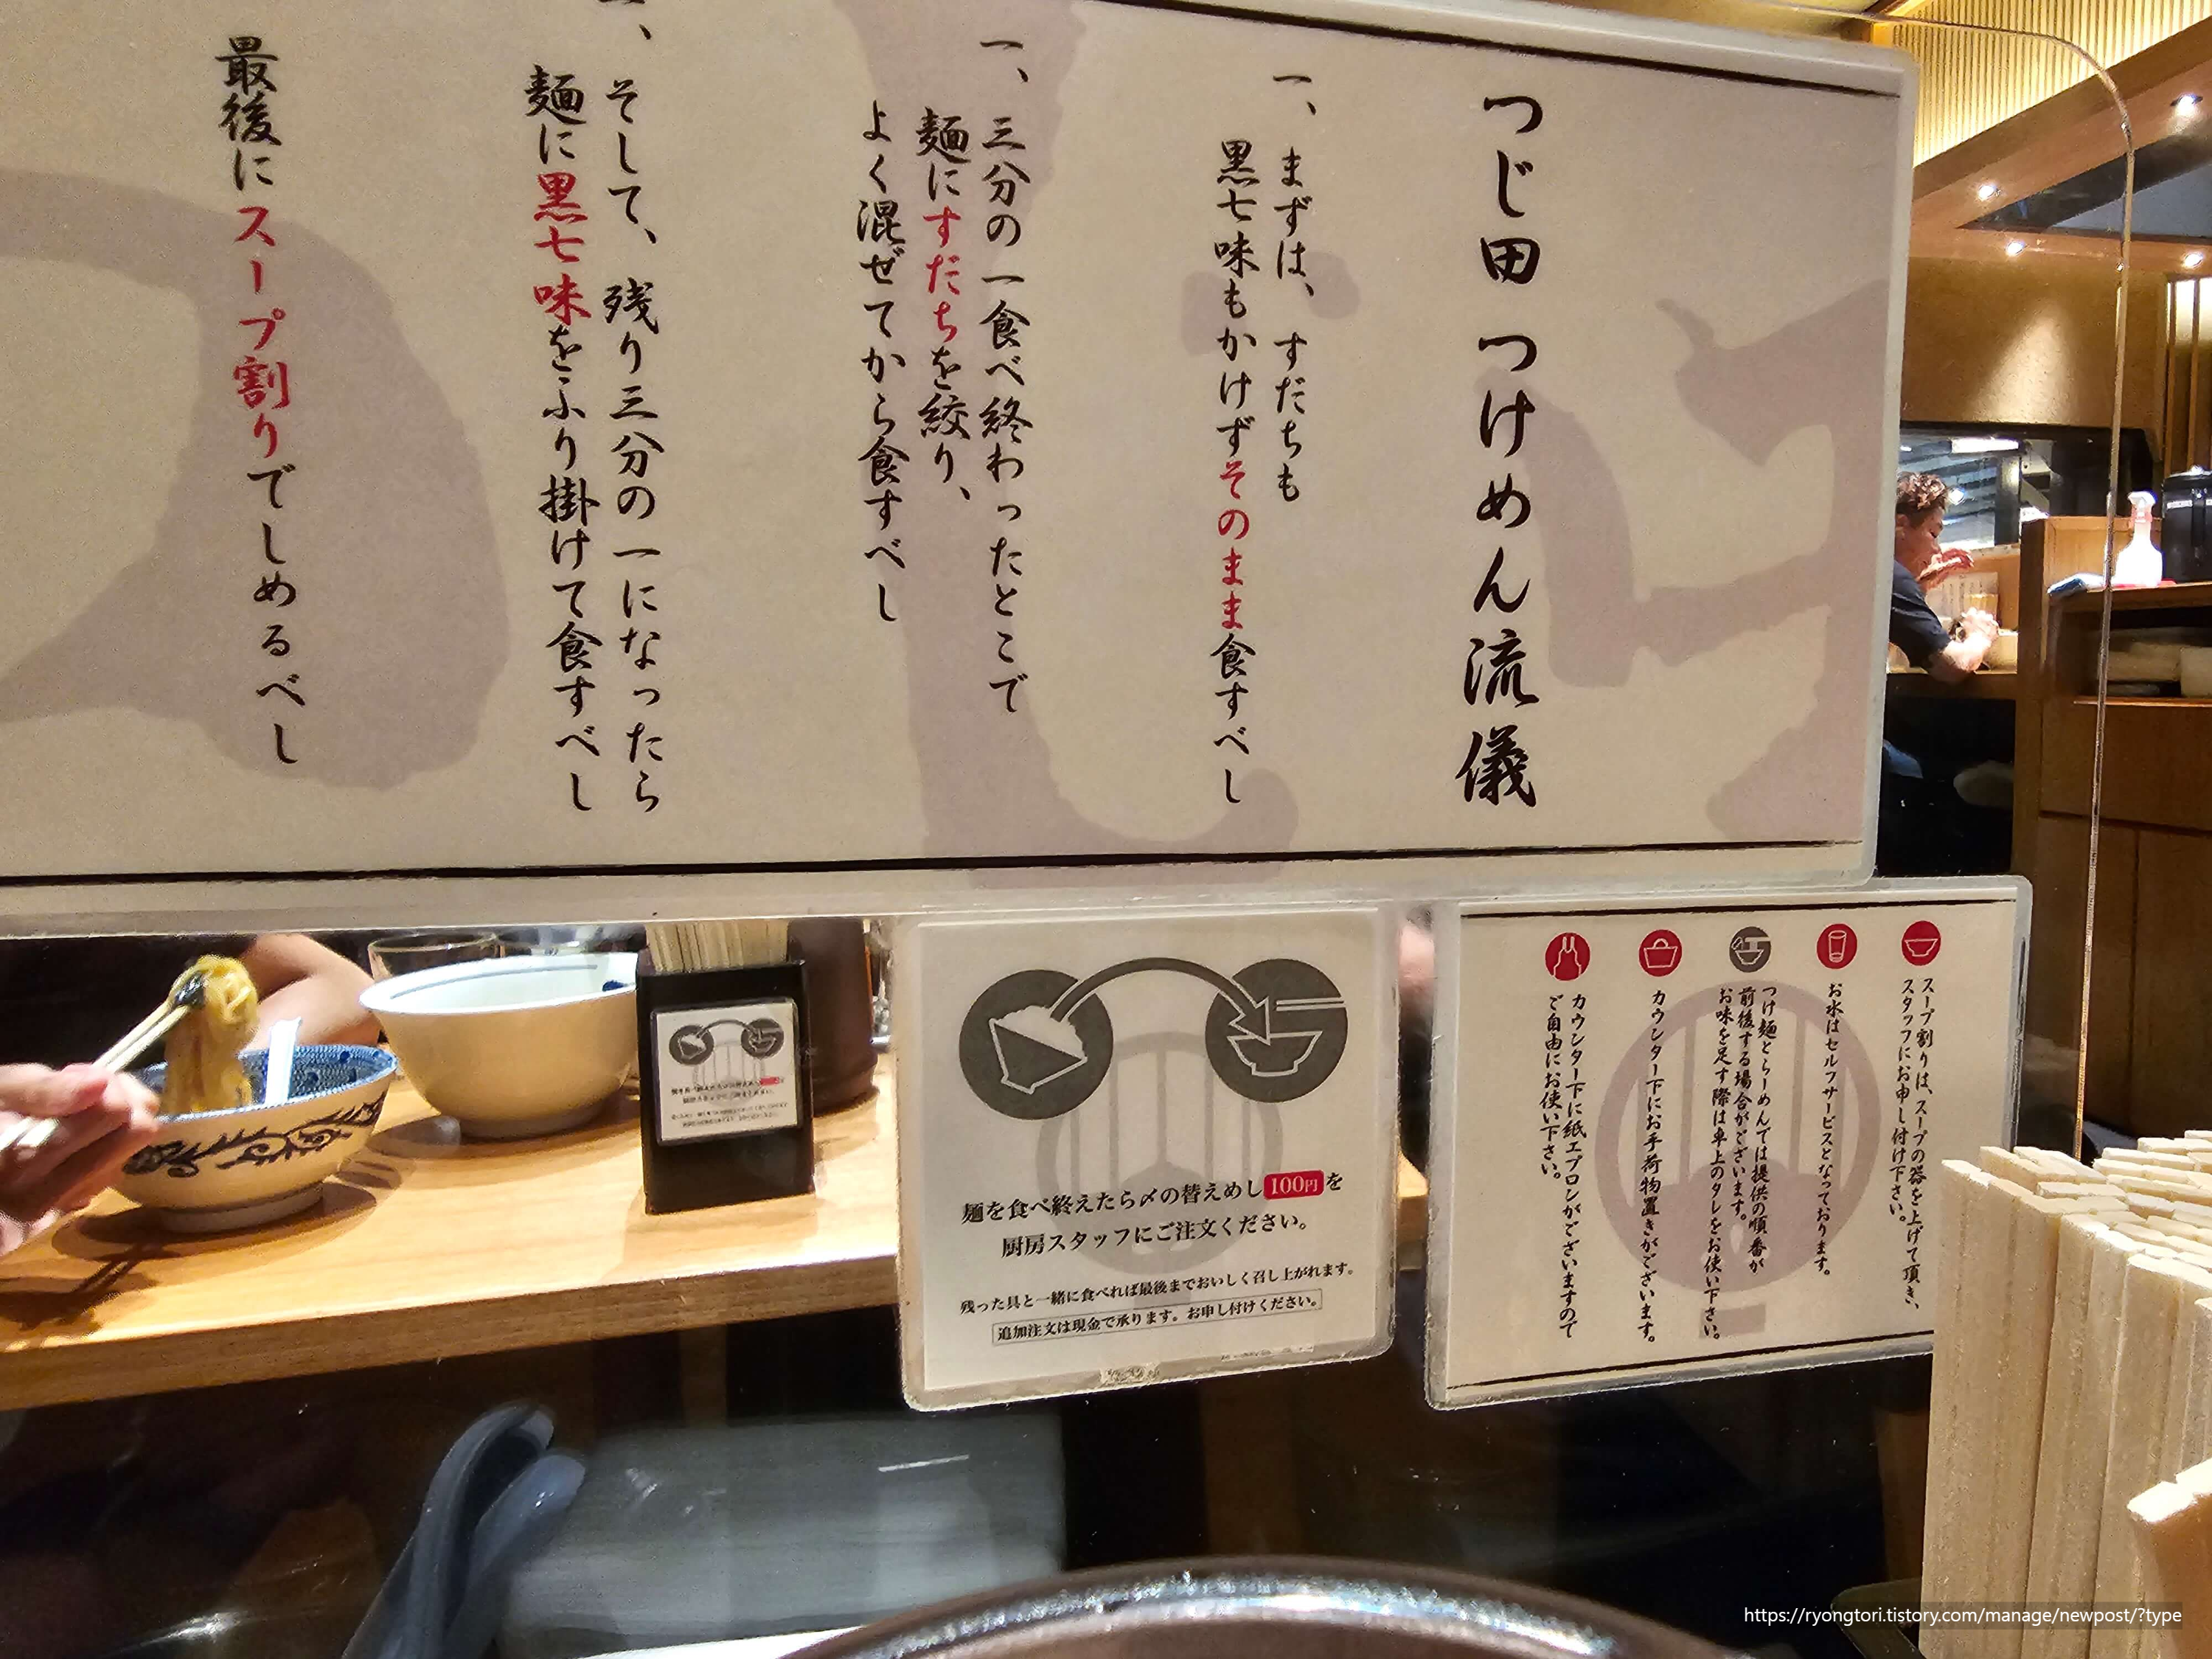 つじ田 つけめん流儀
一、まずは、すだちも
黒七味もかけずそのまま食すべし
一、三分の一食べ終わったとこで
麺にすだちを絞り、
よく混ぜてから食すべし
一、そして、残り三分の一になったら
麺に黒七味をふり掛けて食すべし
最後にスープ割りでしめるべし
麺を食べ終えたら〆の替えめし100円を
厨房スタッフにご注文ください。
残った具と一緒に食べれば最後までおいしく召し上がれます。
追加注文は現金で承ります。お申し付けください。
スープ割りは、スープの器を上げて頂き、
スタッフにお申し付け下さい。
お水はセルフサービスとなっております。
つけ麺とらーめんでは提供の順番が
前後する場合がございます。
お味を足す際は卓上のタレをお使い下さい。
カウンター下にお手荷物置きがございます。
カウンター下に紙エプロンがございますので
ご自由にお使い下さい。
https://ryongtori.tistory.com/manage/newpost/?type